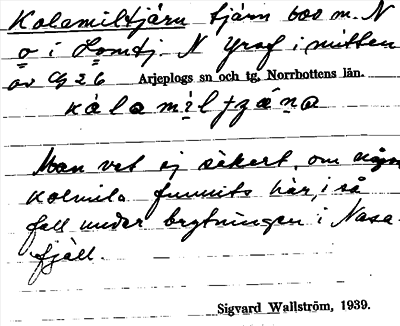 Kolamiltjärn tjärn 600 m. N
o i Lomtj. N Graf i mitten
av G 2 6 Arjeplogs sn och tg, Norrbottens län.
Man vet ej säkert, om någon
kolmila funnits här, i så
fall under brytningen i Nasa-
fjäll.
Sigvard Wallström, 1939.